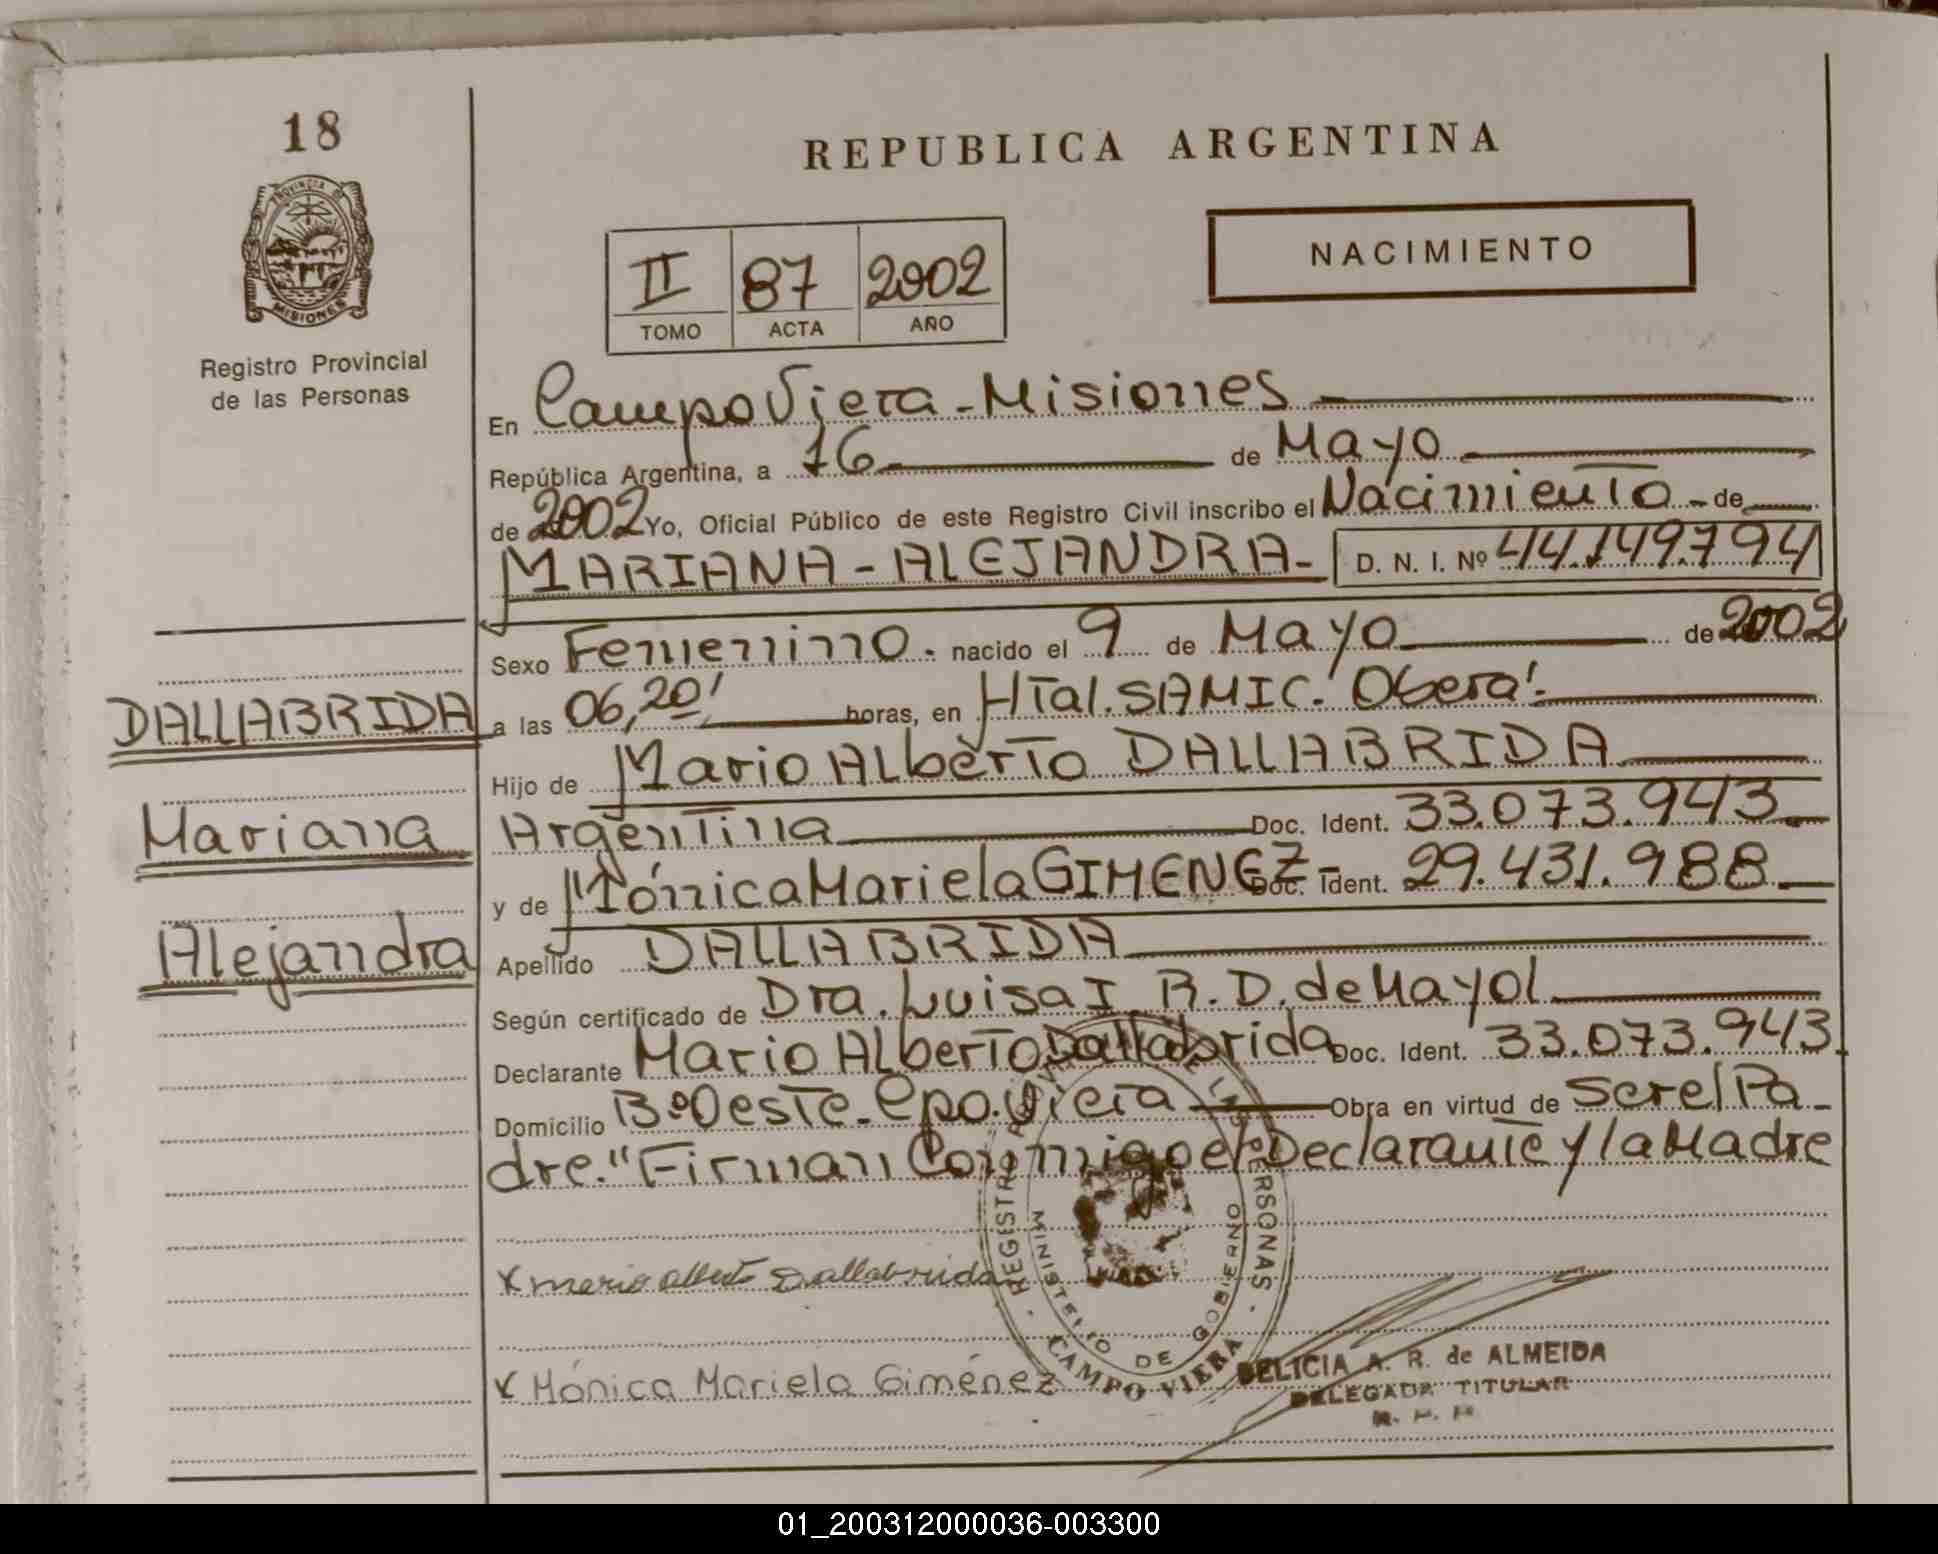 18
PROVINCIA DE
MISIONES
Registro Provincial
de las Personas
REPUBLICA ARGENTINA
II 87 2002
TOMO ACTA AÑO
NACIMIENTO
En Campo Viera - Misiones
República Argentina, a 16 de Mayo
de 2002 Yo, Oficial Público de este Registro Civil inscribo el Nacimiento - de
MARIANA - ALEJANDRA - D. N. I. Nº 44.149.794
Sexo Femenino. nacido el 9 de Mayo de 2002
a las 06,20' horas, en HTal. SAMIC. Oberá'.
Hijo de Mario Alberto DALLABRIDA
Argentina Doc. Ident. 33.073.943
y de Mónica Mariela GIMENEZ - Doc. Ident. 29.431.988
Apellido DALLABRIDA
Según certificado de Dra. Luisa I R. D. de Mayol
Declarante Mario Alberto Dallabrida Doc. Ident. 33.073.943.
Domicilio Bº Oeste - Cpo. Viera Obra en virtud de Ser el Pa-
dre." Firman Conmigo el Declarante y la Madre
x mario alberto Dallabrida
x Mónica Mariela Giménez
DALLABRIDA
Mariana
Alejandra
REGISTRO PROV. DE LAS PERSONAS
MINISTERIO DE GOBIERNO
CAMPO VIERA
DELICIA A. R. de ALMEIDA
DELEGADA TITULAR
R. P. P.
01_200312000036-003300